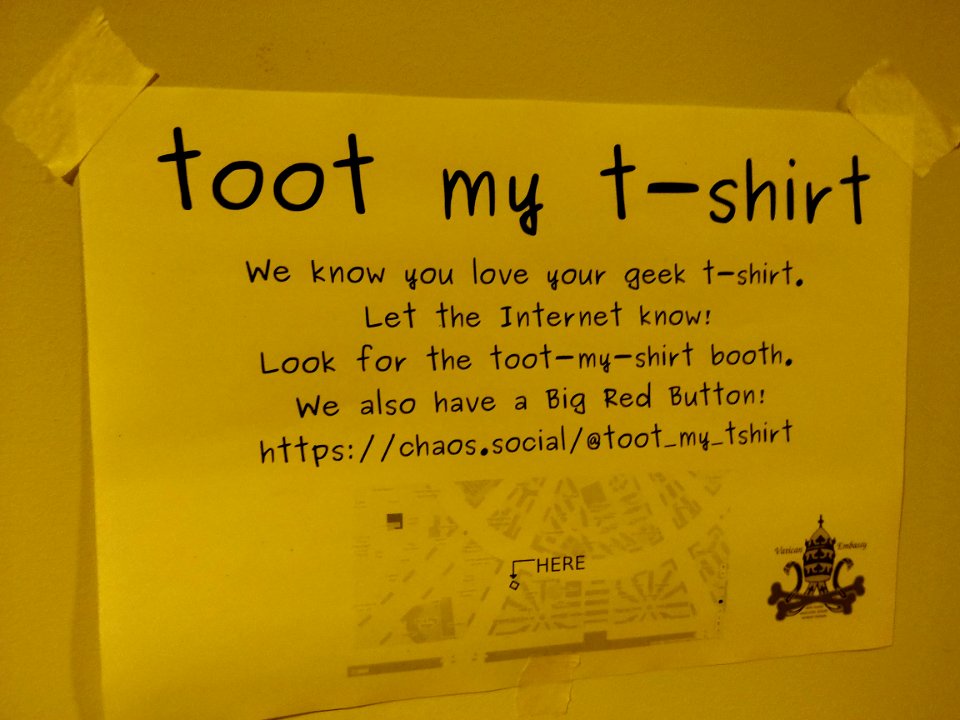 toot my t-shirt
We know you love your geek t-shirt.
Let the Internet know!
Look for the toot-my-shirt booth.
We also have a Big Red Button!
https://chaos.social/@toot_my_tshirt
HERE
Vatican Embassy